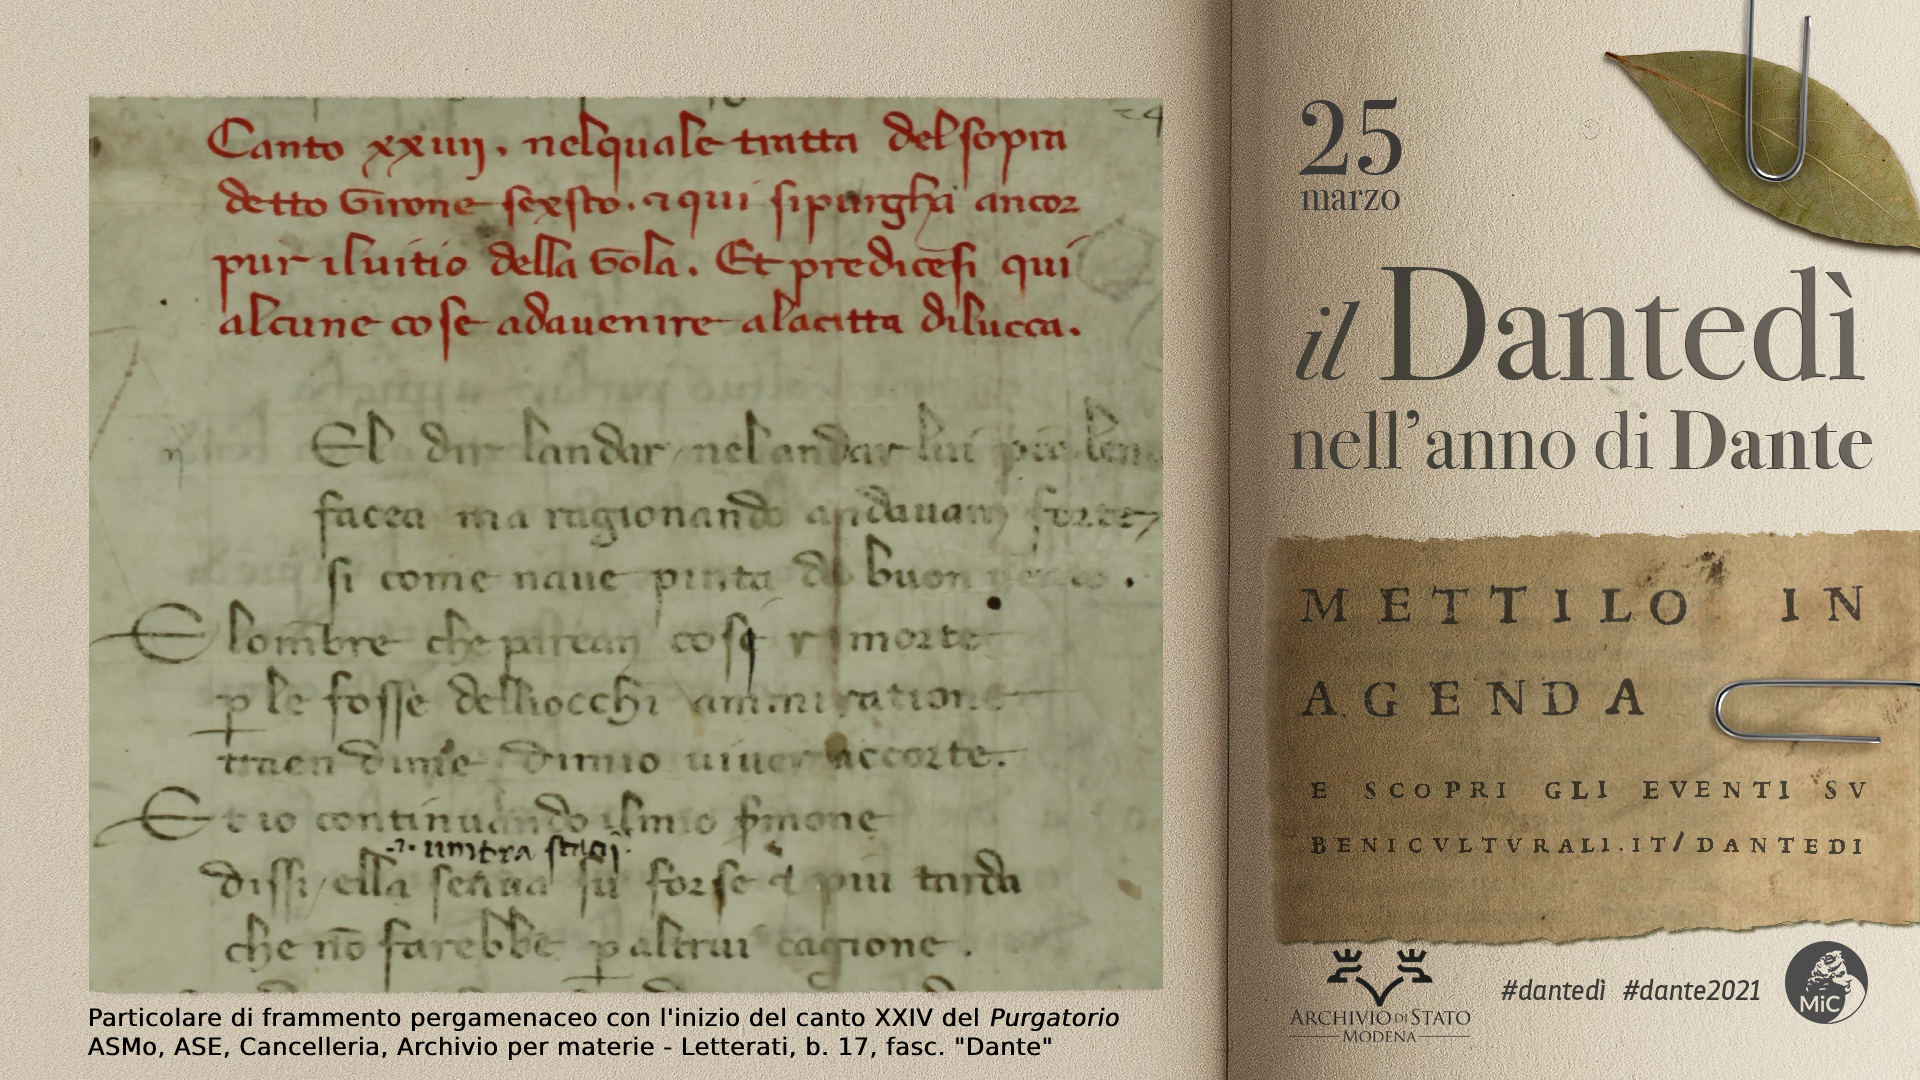 Canto xxiiij. nelquale tratta delsopra
detto Girone sexsto. 7 qui sipurgha ancor
pur iluitio della Gola. Et predicesi qui
alcune cose adauenire alacitta dilucca.
El dir landar nel andar lui piu
facea ma ragionando andauam forte
si come naue pinta da buon
E lombre che parean cose morte
p le fosse delliocchi ammiratione
traen dime dimio uiuer accorte.
Et io continuando ilmio smone
.i. umbra
dissi ella senua su forse 7 piu tarda
che nō farebbe p altrui cagione.
Particolare di frammento pergamenaceo con l'inizio del canto XXIV del Purgatorio
ASMo, ASE, Cancelleria, Archivio per materie - Letterati, b. 17, fasc. "Dante"
25
marzo
il Dantedì
nell'anno di Dante
METTILO IN
AGENDA
E SCOPRI GLI EVENTI SV
BENICVLTVRALI.IT/DANTEDI
ARCHIVIO DI STATO
MODENA
#dantedì #dante2021
MiC